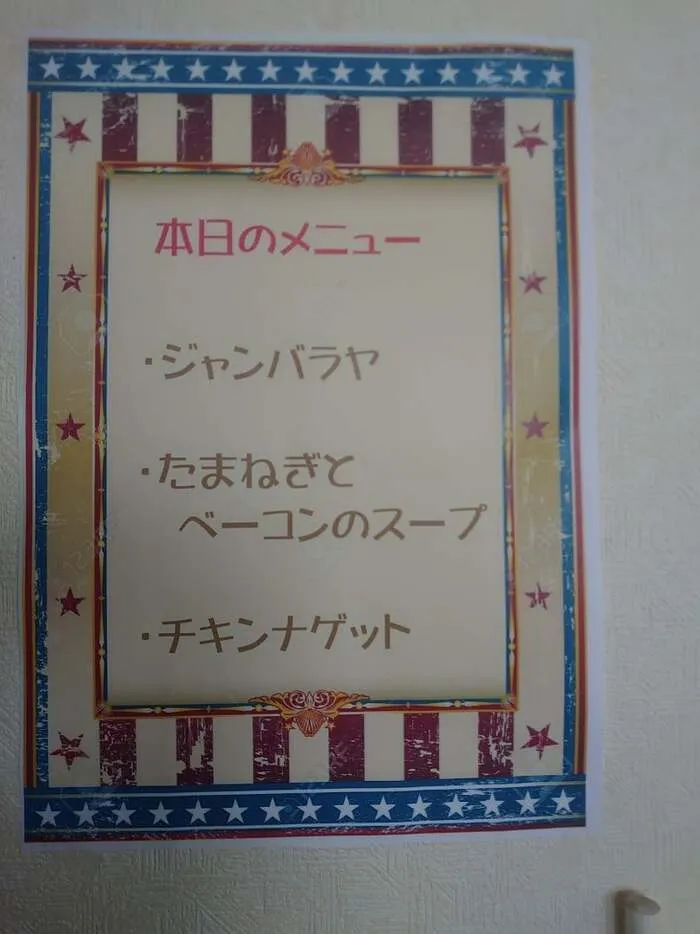 本日のメニュー
・ジャンバラヤ
・たまねぎと
ベーコンのスープ
・チキンナゲット